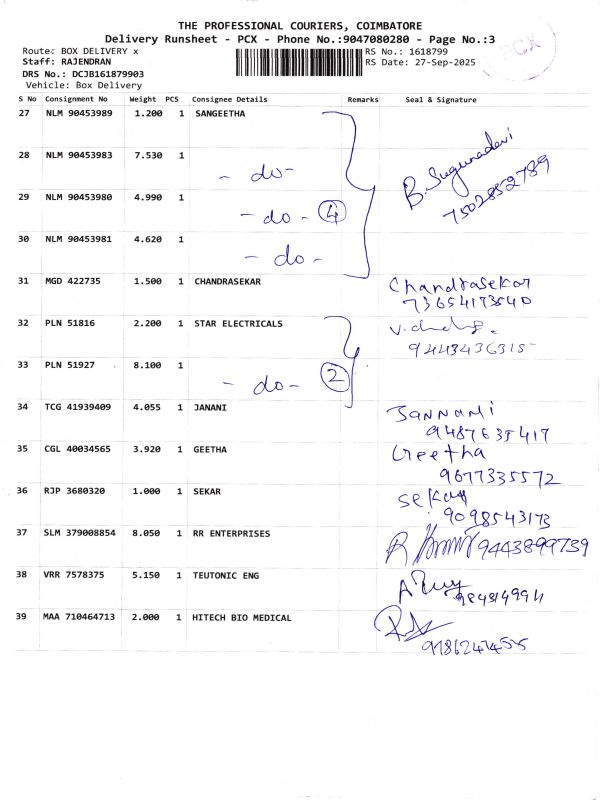 THE PROFESSIONAL COURIERS, COIMBATORE
Delivery Runsheet - PCX - Phone No.:9047080280 - Page No.:3
PCX
Route: BOX DELIVERY x RS No.: 1618799
Staff: RAJENDRAN RS Date: 27-Sep-2025
DRS No.: DCJB161879903
Vehicle: Box Delivery
S No Consignment No Weight PCS Consignee Details Remarks Seal & Signature
27 NLM 90453989 1.200 1 SANGEETHA
28 NLM 90453983 7.530 1 - do - B. Sugunadevi
7502852789
29 NLM 90453980 4.990 1 - do - 4
30 NLM 90453981 4.620 1 - do -
31 MGD 422735 1.500 1 CHANDRASEKAR Chandrasekar
73654173540
32 PLN 51816 2.200 1 STAR ELECTRICALS
9443436315
33 PLN 51927 8.100 1 - do - 2
34 TCG 41939409 4.055 1 JANANI Jannani
9487635417
35 CGL 40034565 3.920 1 GEETHA Geetha
9677335572
36 RJP 3680320 1.000 1 SEKAR Sekar
9098543173
37 SLM 379008854 8.050 1 RR ENTERPRISES 9443899739
38 VRR 7578375 5.150 1 TEUTONIC ENG
39 MAA 710464713 2.000 1 HITECH BIO MEDICAL